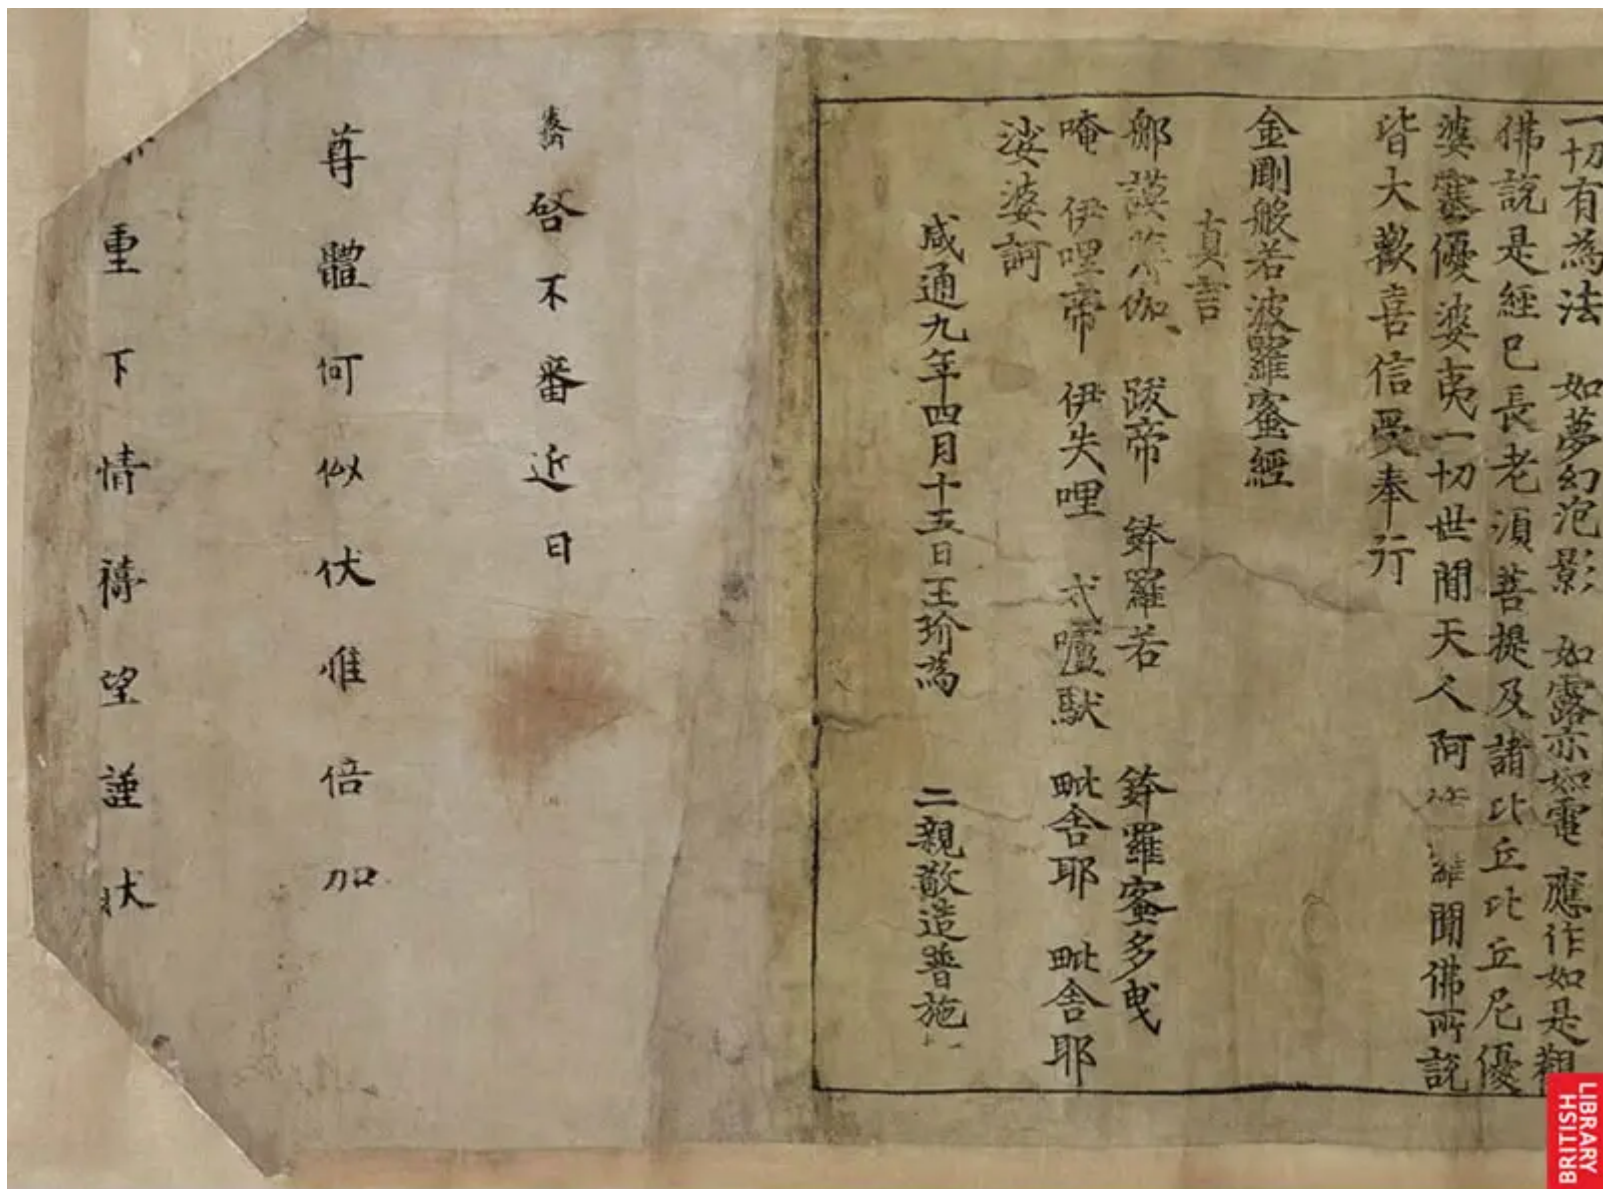 一切有為法　如夢幻泡影　如露亦如電　應作如是觀
佛說是經已長老須菩提及諸比丘比丘尼優
婆塞優婆夷一切世間天人阿　羅聞佛所說
皆大歡喜信受奉行
金剛般若波羅蜜經
真言
那謨　伽　跋帝　鉢羅若　鉢羅蜜多曳
唵　伊哩帝　伊失哩　式嚧馱　毗舍耶　毗舍耶
娑婆訶
咸通九年四月十五日王玠為　二親敬造普施
啓不審近日
尊體何似伏惟倍加
重下情禱望謹狀
BRITISH
LIBRARY